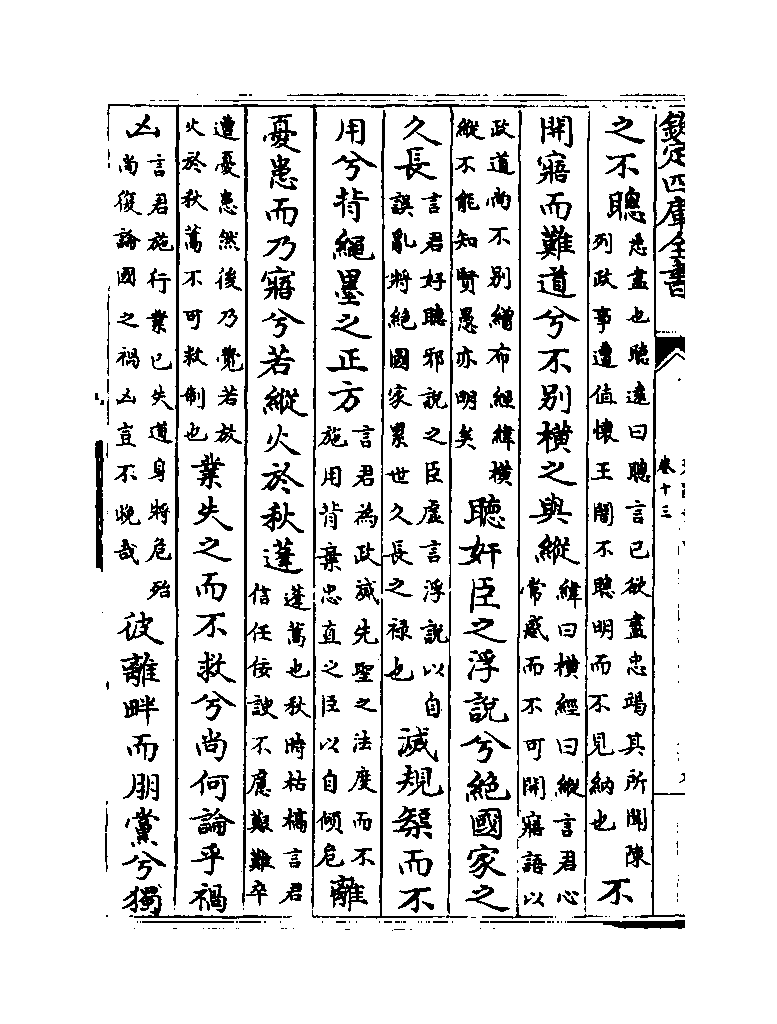 欽定四庫全書
卷十三
之不聰悉盡也聽遠曰聰言已欲盡忠竭其所聞陳列政事遭值懷王闇不聰明而不見納也不
開寤而難道兮不別橫之與縱緯曰橫經曰縱言君心常惑而不可開寤語以
政道尚不別繒布經緯橫縱不能知賢愚亦明矣聽奸臣之浮說兮絕國家之
久長言君好聽邪說之臣虛言浮說以自誤亂將絕國家累世久長之祿也滅規榘而不
用兮背繩墨之正方言君為政滅先聖之法度而不施用背棄忠直之臣以自傾危離
憂患而乃寤兮若縱火於秋蓬蓬蒿也秋時枯槁言君信任佞諛不慮艱難卒
遭憂患然後乃覺若放火於秋蒿不可救制也業失之而不救兮尚何論乎禍
凶言君施行業已失道身將危殆尚復論國之禍凶豈不晚哉彼離畔而朋黨兮獨